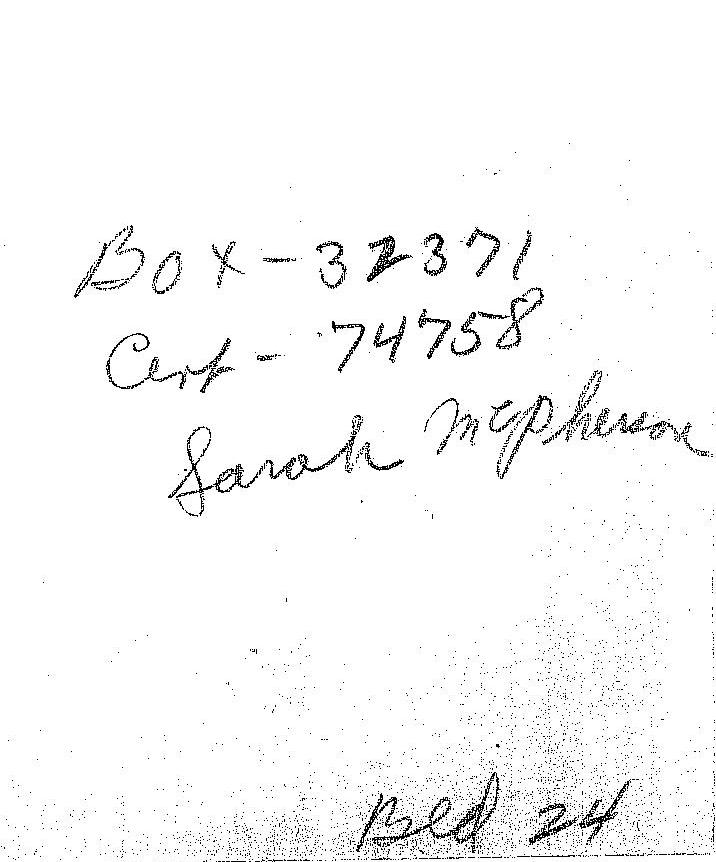 Box - 32371
Cert - 74758
Sarah McPherson
Bld 24